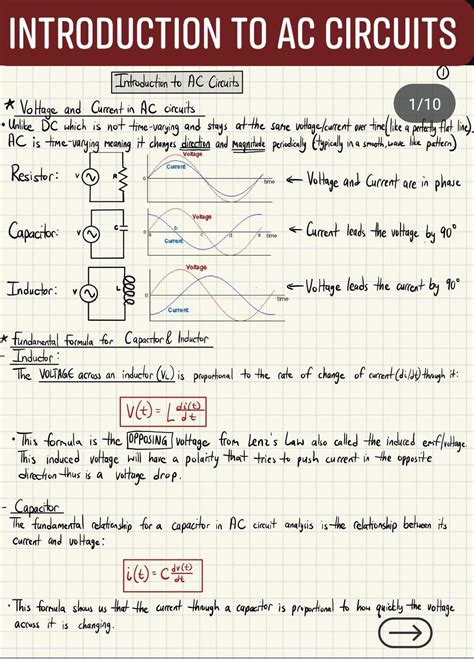 INTRODUCTION TO AC CIRCUITS
1
1/10
Introduction to AC Circuits
* Voltage and Current in AC circuits
• Unlike DC which is not time-varying and stays at the same voltage/current over time (like a perfectly flat line),
AC is time-varying meaning it changes direction and magnitude periodically (typically in a smooth, wave like pattern)
Resistor: V R Voltage Current 0 time ← Voltage and Current are in phase
Capacitor: V C Voltage Current 0 a b c d e time ← Current leads the voltage by 90°
Inductor: V L Voltage Current 0 time ← Voltage leads the current by 90°
* Fundamental Formula for Capacitor & Inductor
- Inductor:
The VOLTAGE across an inductor (VL) is proportional to the rate of change of current (di/dt) through it:
V(t) = L di(t)/dt
• This formula is the OPPOSING voltage from Lenz's Law also called the induced emf/voltage.
This induced voltage will have a polarity that tries to push current in the opposite
direction thus is a voltage drop.
- Capacitor
The fundamental relationship for a capacitor in AC circuit analysis is the relationship between its
current and voltage:
i(t) = C dv(t)/dt
• This formula shows us that the current through a capacitor is proportional to how quickly the voltage
across it is changing.